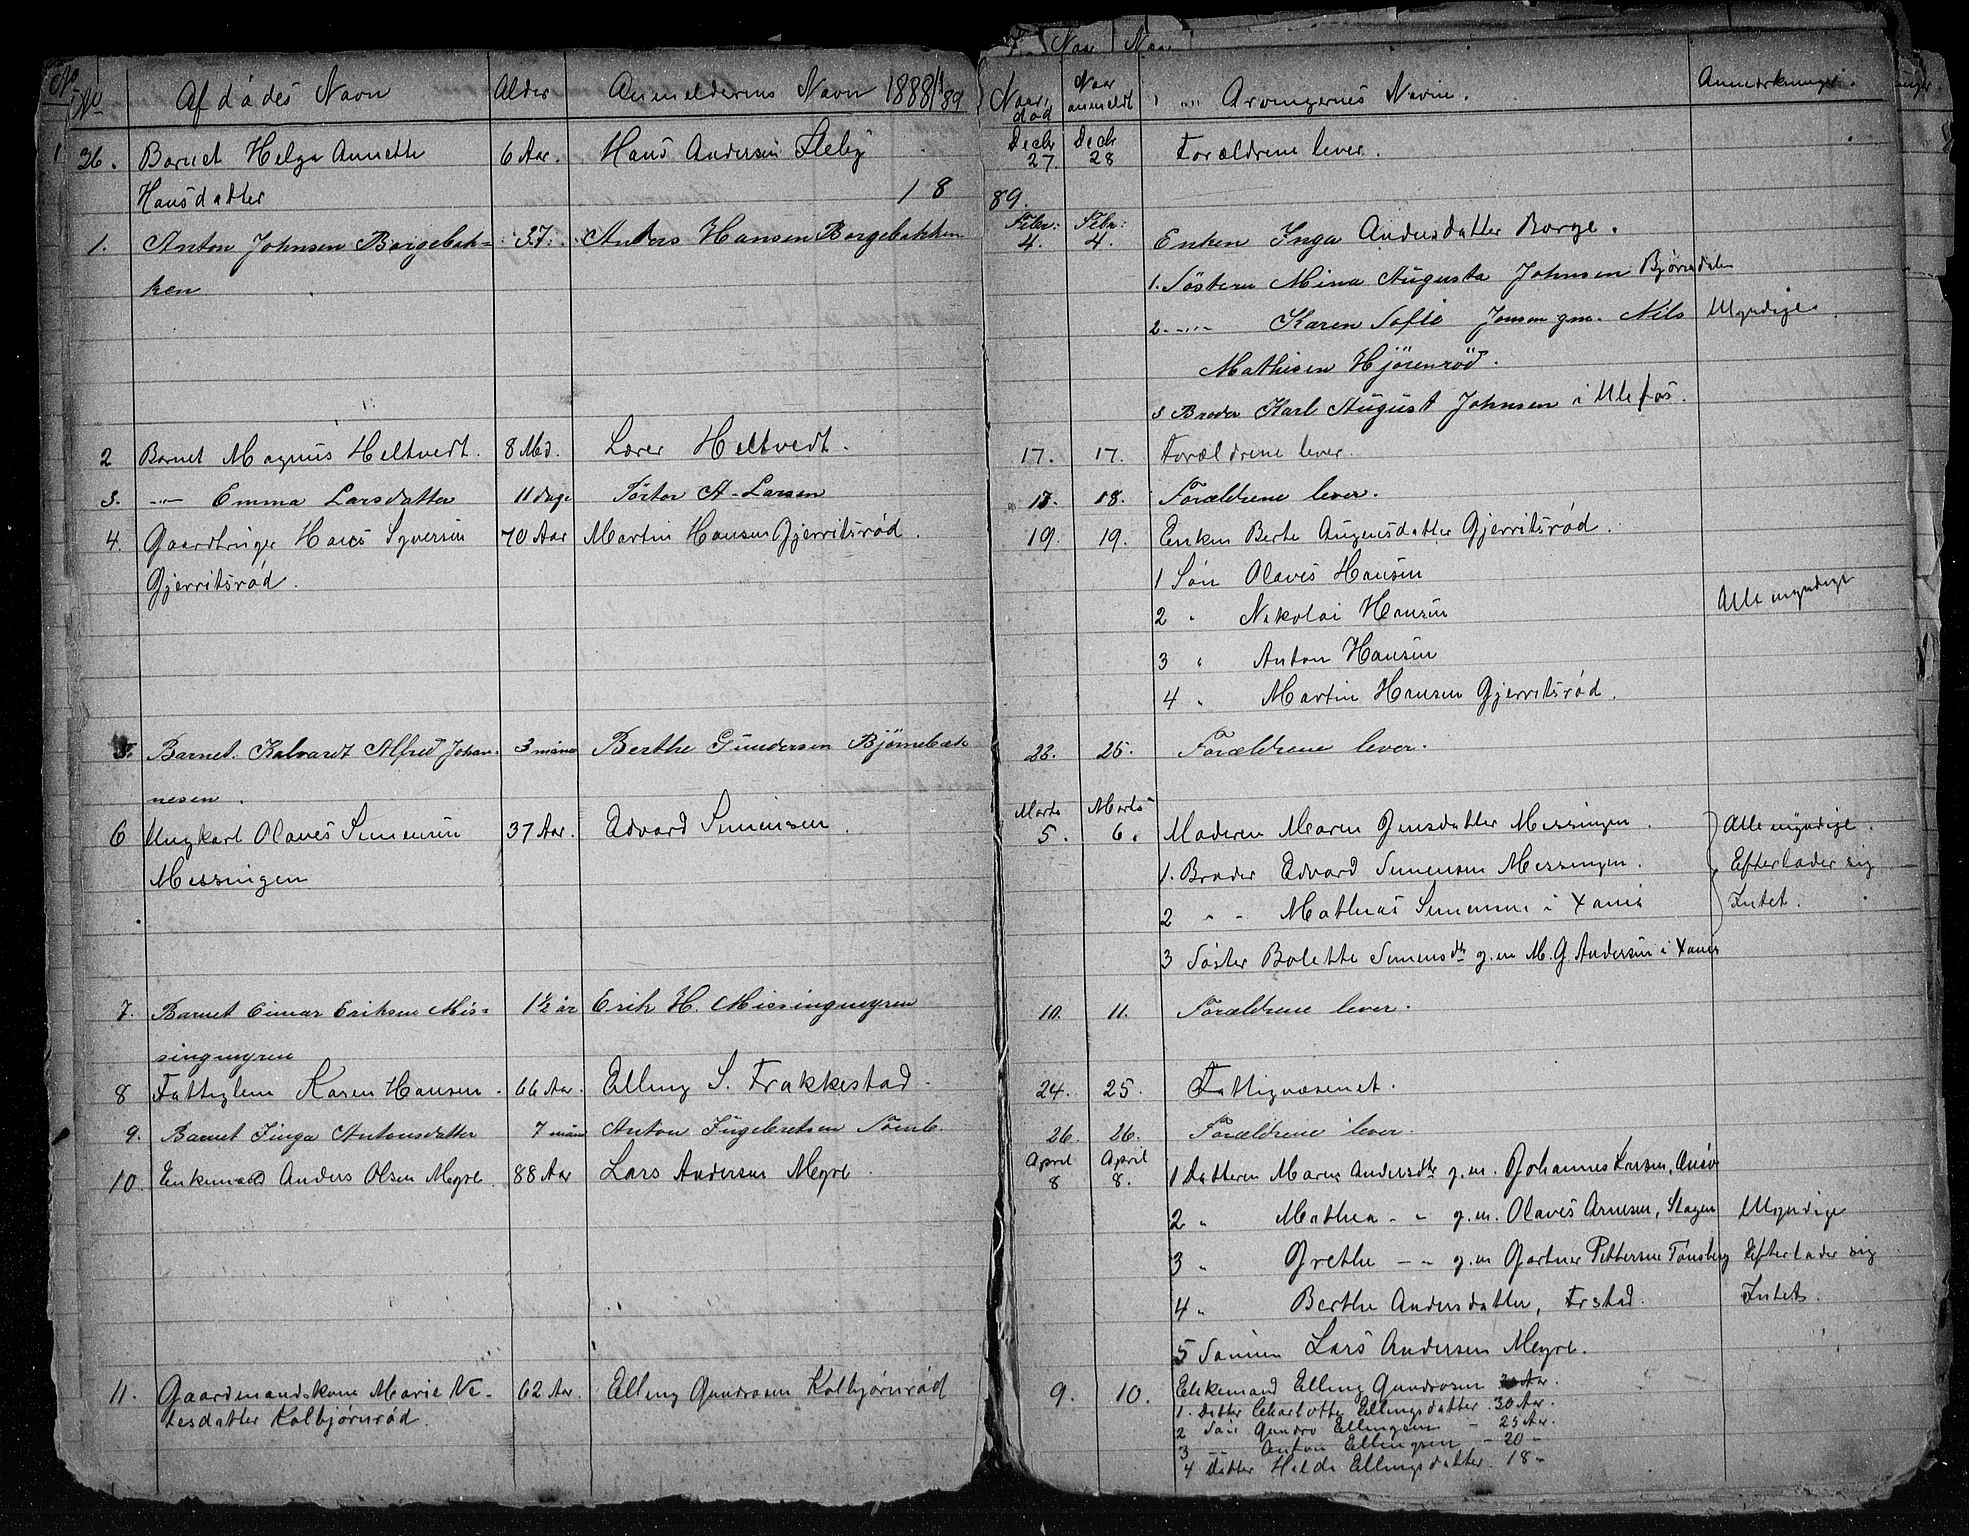 No Afdødes Navn Alder Anmelderens Navn 1888/89 Naar død Naar anmeldt Arvingernes Navne. Anmærkninger.
36. Barnet Helga Annette 6 Aar. Hans Andersen Decbr 27. Decbr 28 Forældrene lever.
Hansdatter 18 89.
1. Anton Johnsen Borgebak- 37. Anders Hansen Borgebakken Febr: 4. Febr: 4. Enken Inga Andersdatter Borge.
ken 1. Søsteren Mina Augusta Johnsen Bjørndalen
2. -"- Karen Sofie Jonsen gm. Nils Myndige.
Mathisen Hjørenrød.
3 Broder Karl August Johnsen i Ulefos.
2 Barnet Magnus Heltvedt. 8 Md. Lærer Heltvedt. 17. 17. Forældrene lever.
3. -"- Emma Larsdatter 11 dage A. Larsen 17. 18. Forældrene lever.
4. Gaardbruger Hans Syversen 70 Aar Martin Hansen Gjerritsrød. 19. 19. Enken Berte Gjerritsrød.
Gjerritsrød. 1 Søn Olaves Hansen
2 " Nikolai Hansen Alle myndige
3 " Anton Hansen
4 " Martin Hansen Gjerritsrød.
5. Barnet. Alfred Johan- 3 måne Berthe Gundersen Bjørnebæk 25. Forældrene lever.
nesen.
6 Ungkarl Olaves Simensen 37 Aar. Edvard Simensen. Marts 5. Marts 6. Moderen Maren Jensdatter Missingen. Alle myndige.
Missingen 1. Broder Edvard Simensen Missingen. Efterlader sig
2 " - Mathias Simensen i Xania Intet.
3 Søster Bolette Simensdtr g.m M. G. Andersen i Xania
7. Barnet Einar Eriksen Mis- 1½ år Erik H. Missingmyren 10. 11. Forældrene lever.
singmyren
8 Fattiglem Karen Hansen. 66 Aar. Elling S. Frakkestad. 24. 25. Fattigvæsenet.
9. Barnet Inga Antonsdatter 7 mån Anton Ingebretsen Tomb. 26. 26. Forældrene lever.
10. Enkemand Anders Olsen Meyre. 88 Aar Lars Andersen Meyre. April 8 April 8. 1 Datteren Maren Andersdtr g.m. Johannes
2 " Mathea - " g.m. Olaves Arnesen, Slagen Myndige
3 " Grethe - " g.m Gartner Pettersen Tønsberg Efterlader sig
4 " Berthe Andersdatter, Frstad. Intet.
5 Sønnen Lars Andersen Meyre.
11. Gaardmandskone Marie 62 Aar. Elling Gundrosen Kolbjørnrød 9. 10. Enkemand Elling Gundrosen
tesdatter Kolbjørnrød. 1. Datter Charlotte Ellingsdatter. 30 Aar.
2 Søn Gundro Ellingsen - 25 Aar.
3 -"- Anton Ellingsen - 20 -
4 Datter Helda Ellingsdatter. 18 -